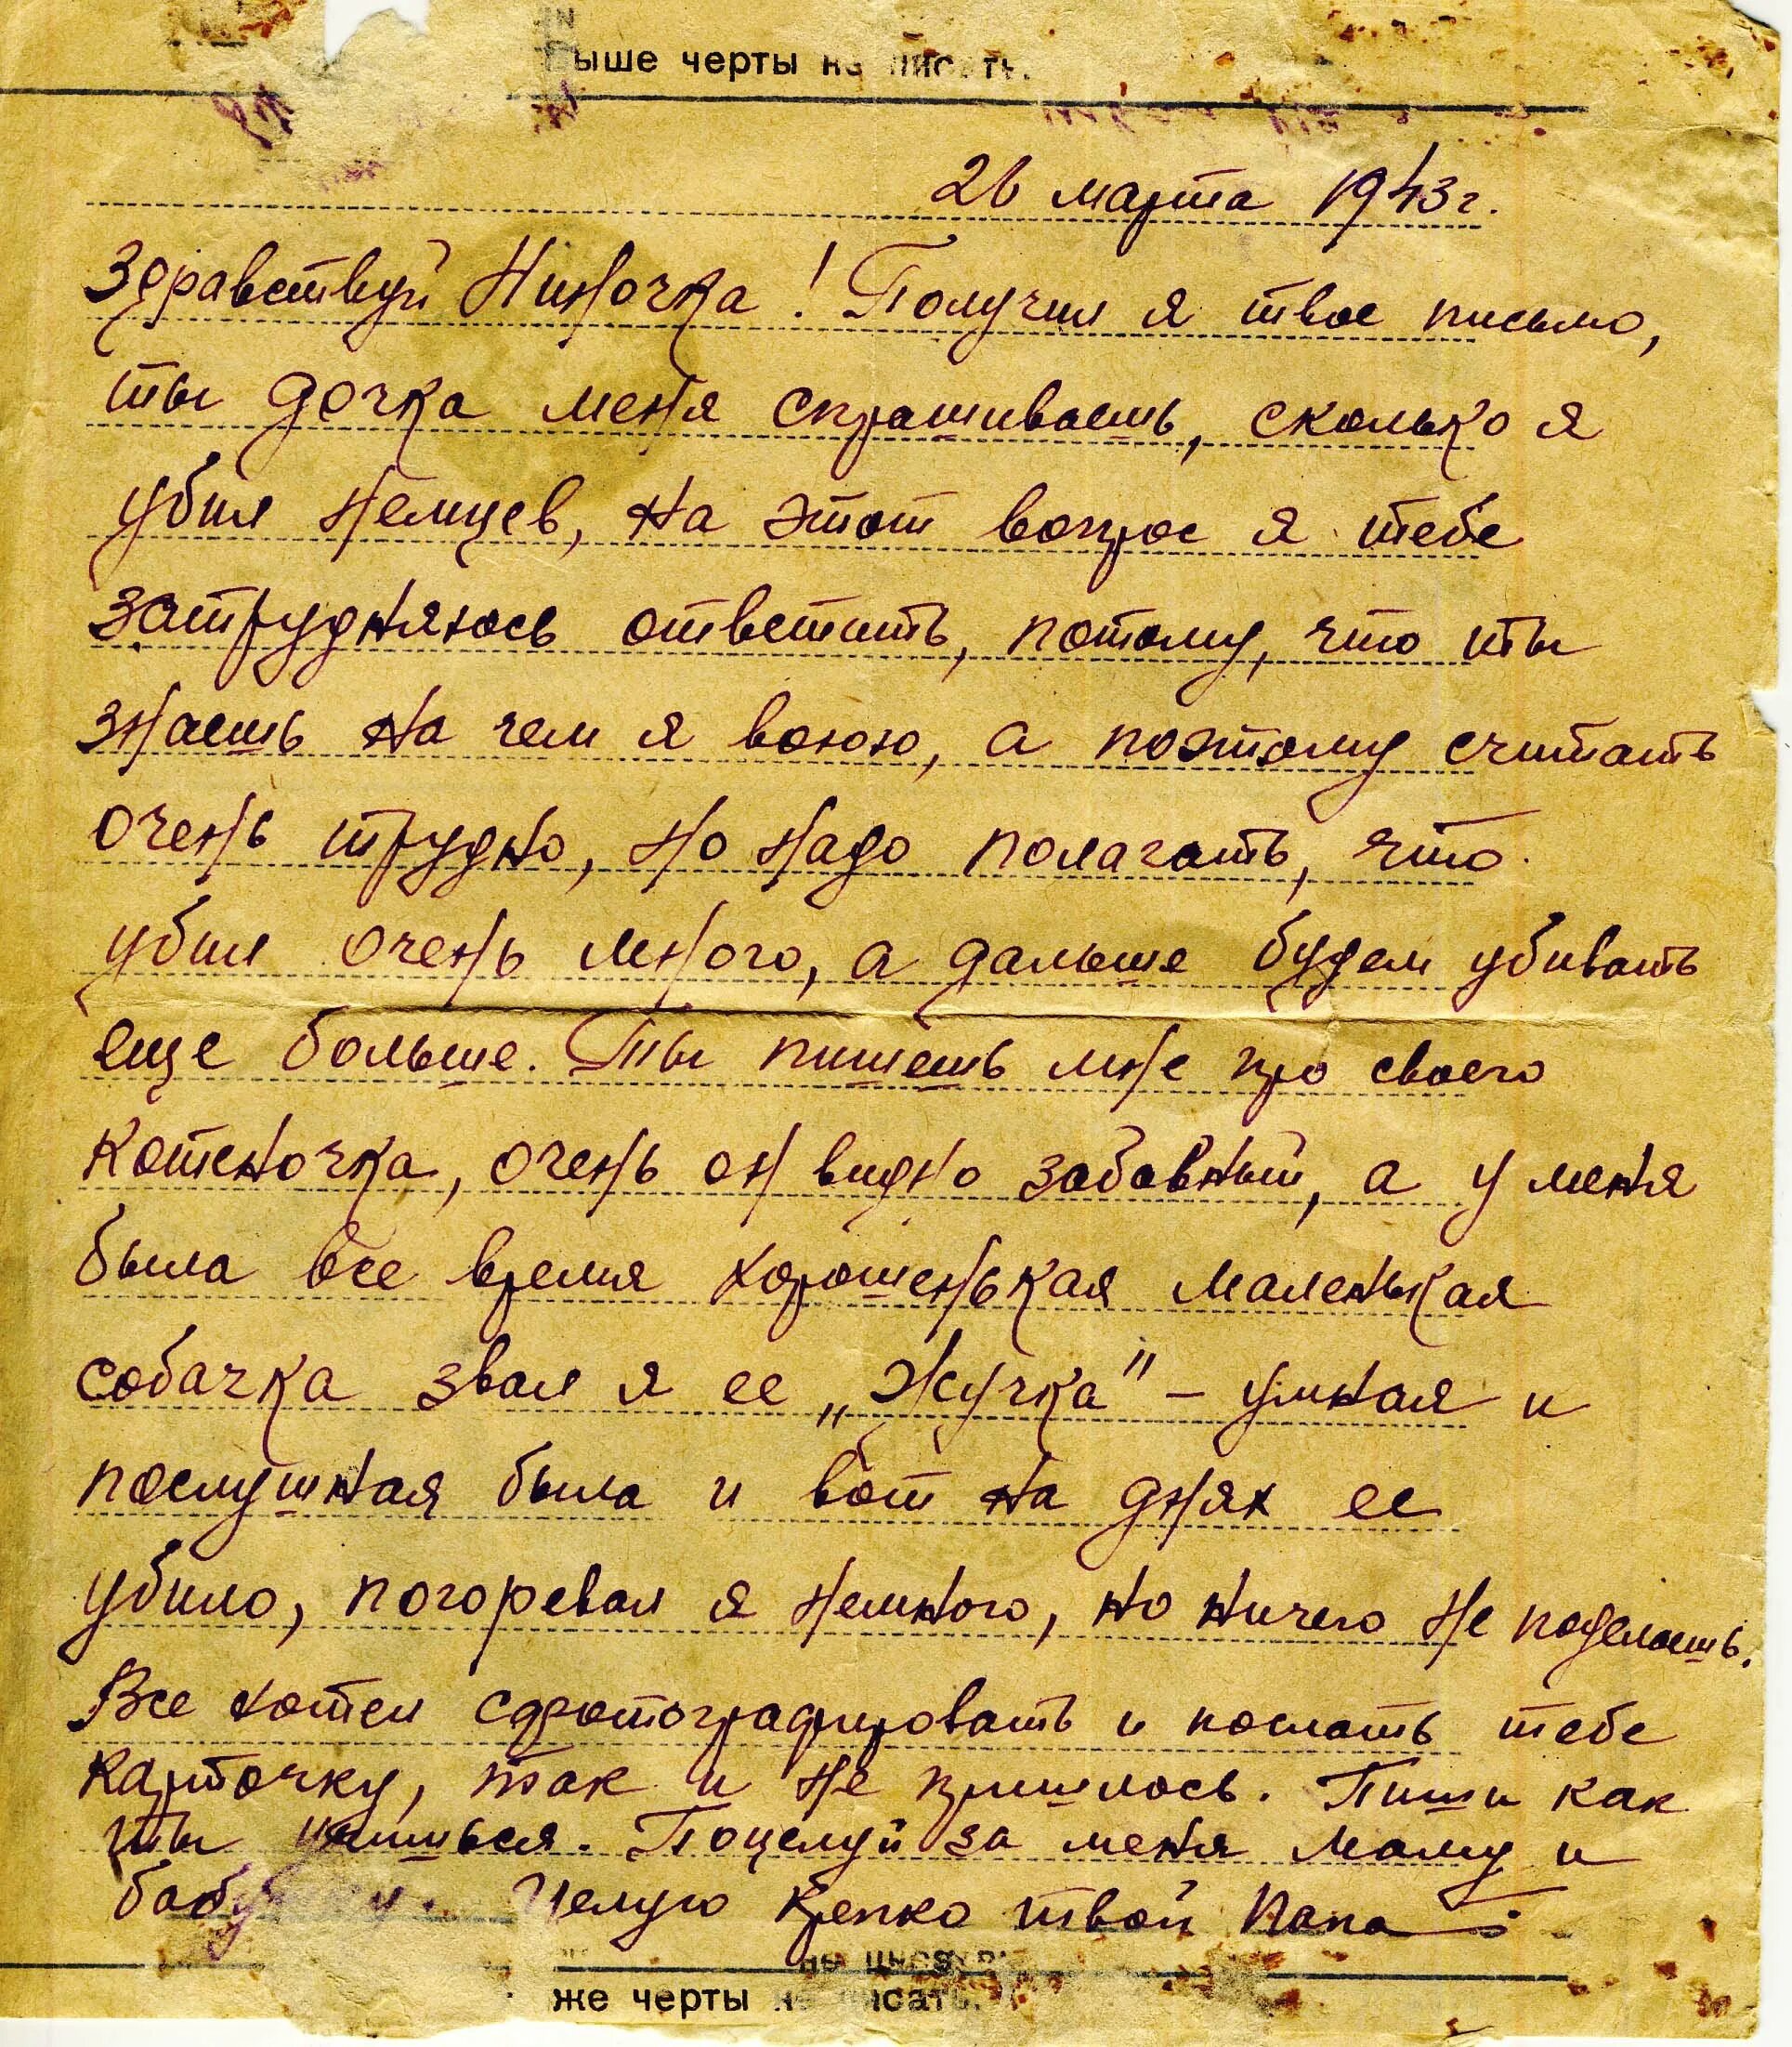 выше черты не писать.
26 марта 1943г.
Здравствуй Ниночка! Получил я твое письмо,
ты дочка меня спрашиваешь, сколько я
убил немцев, на этот вопрос я тебе
затрудняюсь ответить, потому, что ты
знаешь на чем я воюю, а поэтому считать
очень трудно, но надо полагать, что
убил очень много, а дальше будем убивать
еще больше. Ты пишешь мне про своего
котеночка, очень он видно забавный, а у меня
была все время хорошенькая маленькая
собачка звал я ее „Жучка" – умная и
послушная была и вот на днях ее
убило, погоревал я немного, но ничего не поделаешь.
Все хотел сфотографировать и послать тебе
карточку, так и не пришлось. Пиши как
ты учишься. Поцелуй за меня маму и
бабушку. Целую крепко твой папа
же черты не писать.